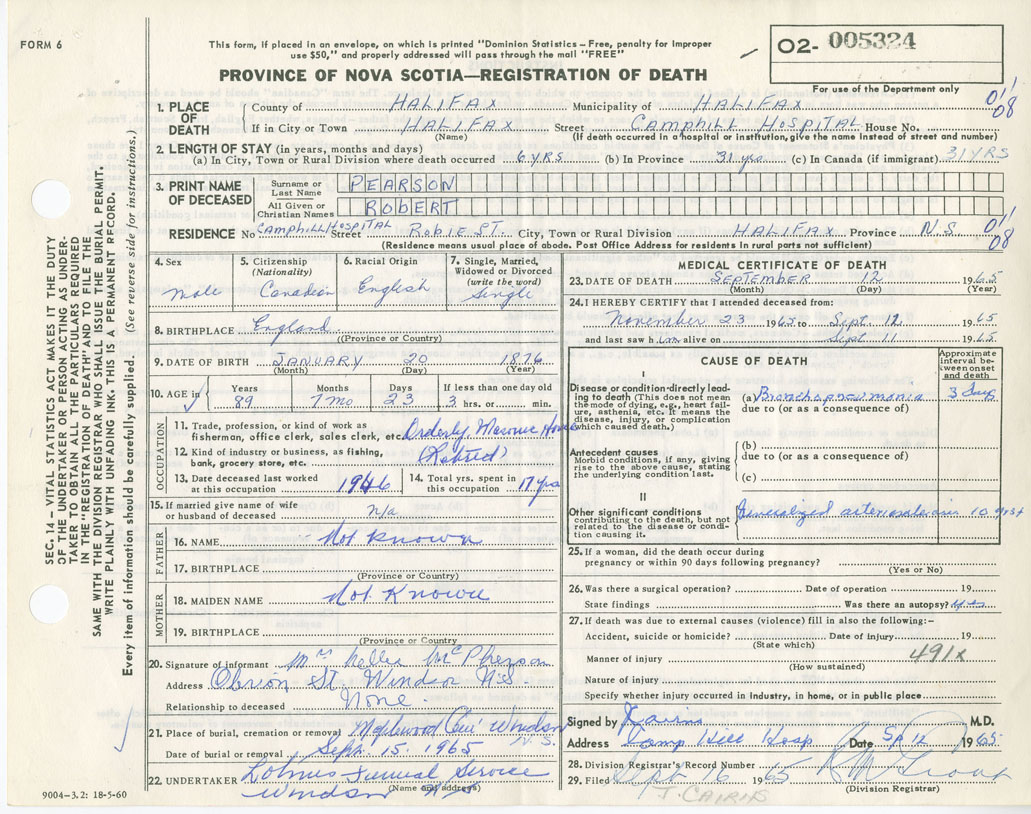 FORM 6
This form, if placed in an envelope, on which is printed "Dominion Statistics – Free, penalty for improper
use $50," and properly addressed will pass through the mail "FREE"
02- 005324
For use of the Department only
PROVINCE OF NOVA SCOTIA—REGISTRATION OF DEATH
1. PLACE OF DEATH
County of HALIFAX Municipality of HALIFAX 01/08
If in City or Town HALIFAX Street CAMPHILL HOSPITAL House No.
(Name) (If death occurred in a hospital or institution, give the name instead of street and number)
2. LENGTH OF STAY (in years, months and days)
(a) In City, Town or Rural Division where death occurred 6 YRS (b) In Province 31 yrs (c) In Canada (if immigrant) 31 YRS
3. PRINT NAME OF DECEASED
Surname or Last Name PEARSON
All Given or Christian Names ROBERT
RESIDENCE No CAMPHILL HOSPITAL Street ROBIE ST. City, Town or Rural Division HALIFAX Province N.S 01/08
(Residence means usual place of abode. Post Office Address for residents in rural parts not sufficient)
4. Sex
Male
5. Citizenship
(Nationality)
Canadian
6. Racial Origin
English
7. Single, Married,
Widowed or Divorced
(write the word)
Single
8. BIRTHPLACE England
(Province or Country)
9. DATE OF BIRTH JANUARY 20 1876
(Month) (Day) (Year)
10. AGE in Years 89 Months 7 mo Days 23 If less than one day old 3 hrs. or min.
OCCUPATION
11. Trade, profession, or kind of work as
fisherman, office clerk, sales clerk, etc. Orderly
12. Kind of industry or business, as fishing,
bank, grocery store, etc. (Retired)
13. Date deceased last worked
at this occupation 1946
14. Total yrs. spent in
this occupation 17 yrs
15. If married give name of wife
or husband of deceased n/a
FATHER
16. NAME Not Known
17. BIRTHPLACE
(Province or Country)
MOTHER
18. MAIDEN NAME Not Known
19. BIRTHPLACE
(Province or Country
20. Signature of informant Mrs Nellie McPherson
Address Obrien St. Windsor N.S.
Relationship to deceased None
21. Place of burial, cremation or removal Maplewood Cem Windsor
N.S.
Date of burial or removal Sept. 15. 1965
22. UNDERTAKER Funeral Service
Windsor N.S
(Name and address)
9004—3.2: 18-5-60
MEDICAL CERTIFICATE OF DEATH
23. DATE OF DEATH SEPTEMBER 12 1965
(Month) (Day) (Year)
24. I HEREBY CERTIFY that I attended deceased from:
November 23 to Sept. 12 1965
and last saw him alive on Sept 11 1965
CAUSE OF DEATH
Approximate
interval be-
tween onset
and death
I
Disease or condition directly lead-
ing to death (This does not
mean the mode of dying, e.g., heart fail-
ure, asthenia, etc. It means the
disease, injury, or complication
which caused death.)
(a) Bronchopneumonia 3 days
due to (or as a consequence of)
Antecedent causes
Morbid conditions, if any, giving
rise to the above cause, stating
the underlying condition last.
(b)
due to (or as a consequence of)
(c)
II
Other significant conditions
contributing to the death, but not
related to the disease or condi-
tion causing it.
Generalized arteriosclerosis 10 yrs+
25. If a woman, did the death occur during
pregnancy or within 90 days following pregnancy?
(Yes or No)
26. Was there a surgical operation? Date of operation 19
State findings Was there an autopsy?
27. If death was due to external causes (violence) fill in also the following:—
Accident, suicide or homicide? Date of injury 19
(State which)
Manner of injury 491x
(How sustained)
Nature of injury
Specify whether injury occurred in industry, in home, or in public place
Signed by Cairns M.D.
Address Camp Hill Hosp Date Sp 12 1965
28. Division Registrar's Record Number
29. Filed Sept 16 1965
(Division Registrar)
T. CAIRNS
SEC. 14 – VITAL STATISTICS ACT MAKES IT THE DUTY
OF THE UNDERTAKER OR PERSON ACTING AS UNDER-
TAKER TO OBTAIN ALL THE PARTICULARS REQUIRED
IN THE "REGISTRATION OF DEATH" AND TO FILE THE
SAME WITH THE DIVISION REGISTRAR WHO SHALL ISSUE THE BURIAL PERMIT.
WRITE PLAINLY WITH UNFADING INK—THIS IS A PERMANENT RECORD.
Every item of information should be carefully supplied. (See reverse side for instructions.)